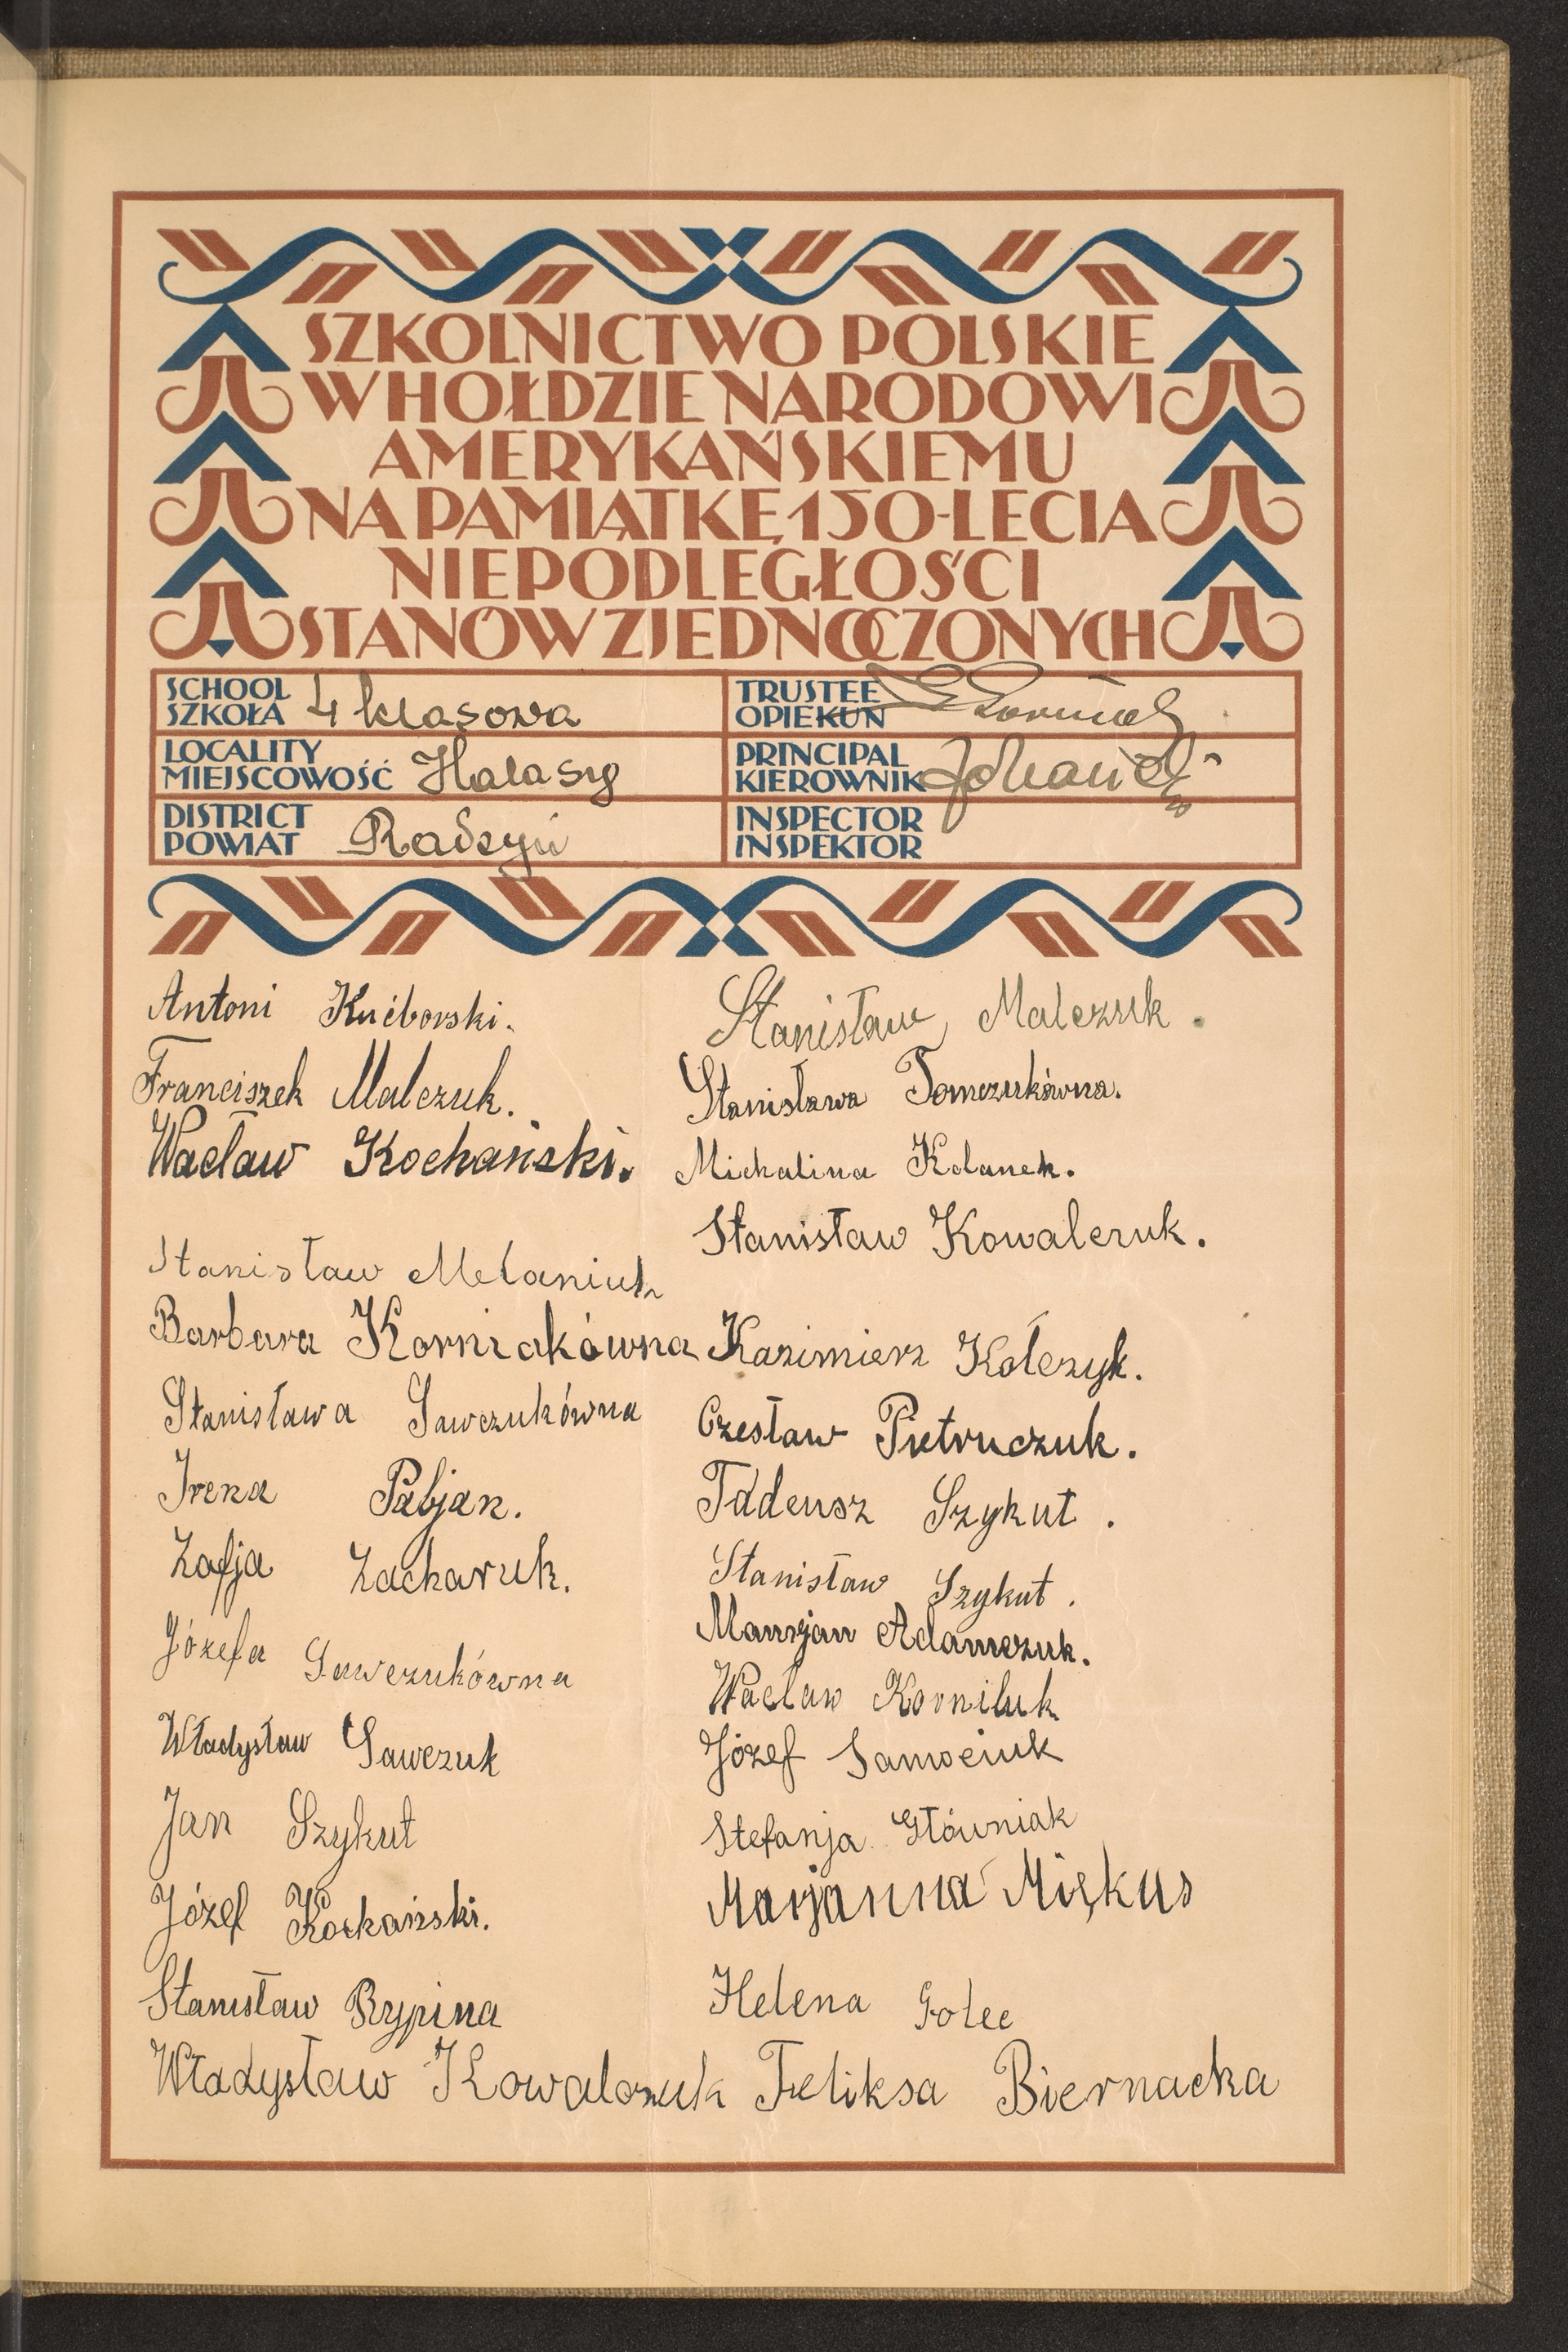 SZKOLNICTWO POLSKIE
W HOŁDZIE NARODOWI
AMERYKAŃSKIEMU
NA PAMIĄTKĘ 150-LECIA
NIEPODLEGŁOŚCI
STANÓW ZJEDNOCZONYCH
SCHOOL
SZKOŁA 4 klasowa
LOCALITY
MIEJSCOWOŚĆ Halasy
DISTRICT
POWIAT Radzyń
TRUSTEE
OPIEKUN
PRINCIPAL
KIEROWNIK
INSPECTOR
INSPEKTOR
Antoni Kućborski.
Franciszek Malczuk.
Wacław Kochański.
Stanisław Melaniuk
Barbara Korniakówna
Stanisława Sawczukówna
Irena Pabjan.
Zofja Zacharuk.
Józefa Sawczukówna
Władysław Sawczuk
Jan Szykut
Józef Kochański.
Stanisław Rypina
Władysław Kowalczuk
Stanisław Malczuk.
Stanisława Tomczukówna.
Michalina Kolanek.
Stanisław Kowalczuk.
Kazimierz Kołczyk.
Czesław Pietruczuk.
Tadeusz Szykut.
Stanisław Szykut.
Marjan Adamczuk.
Wacław Korniluk
Józef Samociuk
Stefanja Główniak
Marjanna Miękus
Helena Golec
Feliksa Biernacka